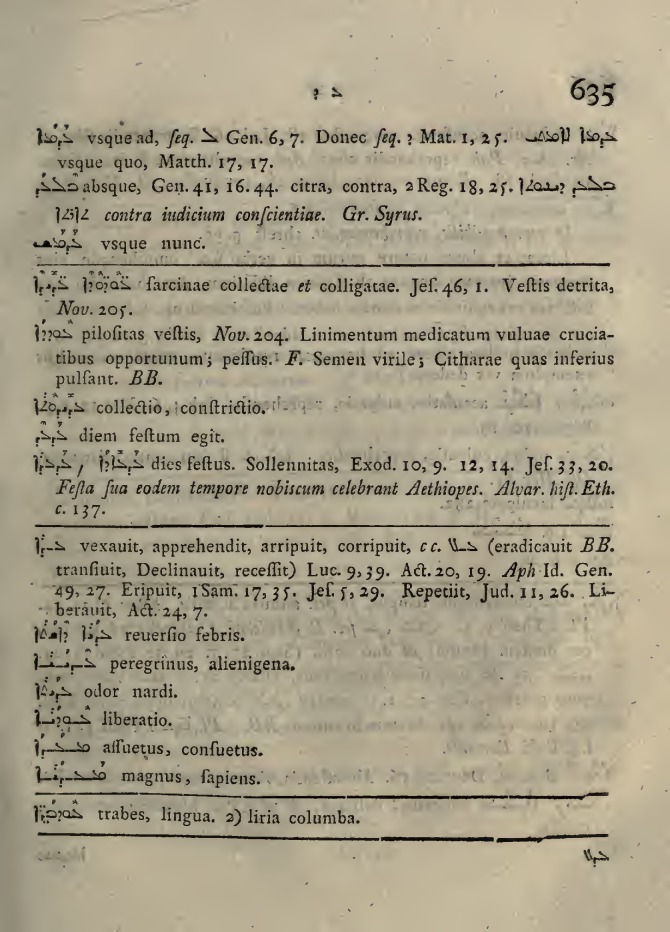 ܥ ܕ 635
ܥܕܡܐ vsque ad, ſeq. ܠ Gen. 6, 7. Donec ſeq. ܕ Mat. 1, 25. ܥܕܡܐ ܠܐܡܬܝ
vsque quo, Matth. 17, 17.
ܒܠܥܕ absque, Gen. 41, 16. 44. citra, contra, 2 Reg. 18, 25. ܒܠܥܕ
ܬܐܪܬܐ contra iudicium conſcientiae. Gr. Syrus.
vsque nunc.
ſarcinae collectae et colligatae. Jeſ. 46, 1. Veſtis detrita,
Nov. 205.
ܥܘܕܕܐ piloſitas veſtis, Nov. 204. Linimentum medicatum vuluae crucia-
tibus opportunum; peſſus. F. Semen virile; Citharae quas inferius
pulſant. BB.
ܥܕܝܕܘܬܐ collectio, conſtrictio.
ܥܕܥܕ diem feſtum egit.
ܥܕܥܕܐ, ܥܕܥܐܕܐ dies feſtus. Sollennitas, Exod. 10, 9. 12, 14. Jeſ. 33, 20.
Feſta ſua eodem tempore nobiscum celebrant Aethiopes. Alvar. hiſt. Eth.
c. 137.
ܥܕܐ vexauit, apprehendit, arripuit, corripuit, cc. ܥܠ (eradicauit BB.
tranſiuit, Declinauit, receſſit) Luc. 9, 39. Act. 20, 19. Aph Id. Gen.
49, 27. Eripuit, 1 Sam. 17, 35. Jeſ. 5, 29. Repetiit, Jud. 11, 26. Li-
berauit, Act. 24, 7.
ܥܕܝܐ ܕܐܫܬܐ reuerſio febris.
peregrinus, alienigena.
ܥܕܝܬܐ odor nardi.
liberatio.
ܡܥܕܐ aſſuetus, conſuetus.
magnus, ſapiens.
trabes, lingua. 2) liria columba.
ܥܕܠ